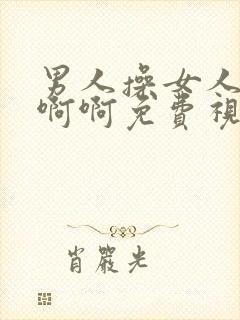 男人操女人
啊啊免费視
肖嚴光